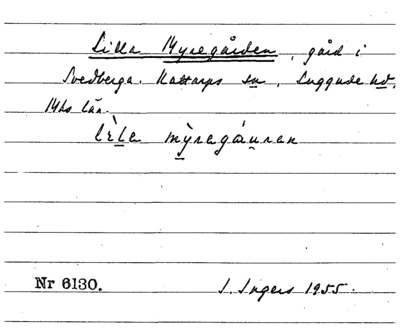 Lilla Myregården, gård i
Svedberga. Kattarps sn, Luggude hd,
Mhs län.
lìla mỳregáuren
Nr 6130. I. Ingers 1955.